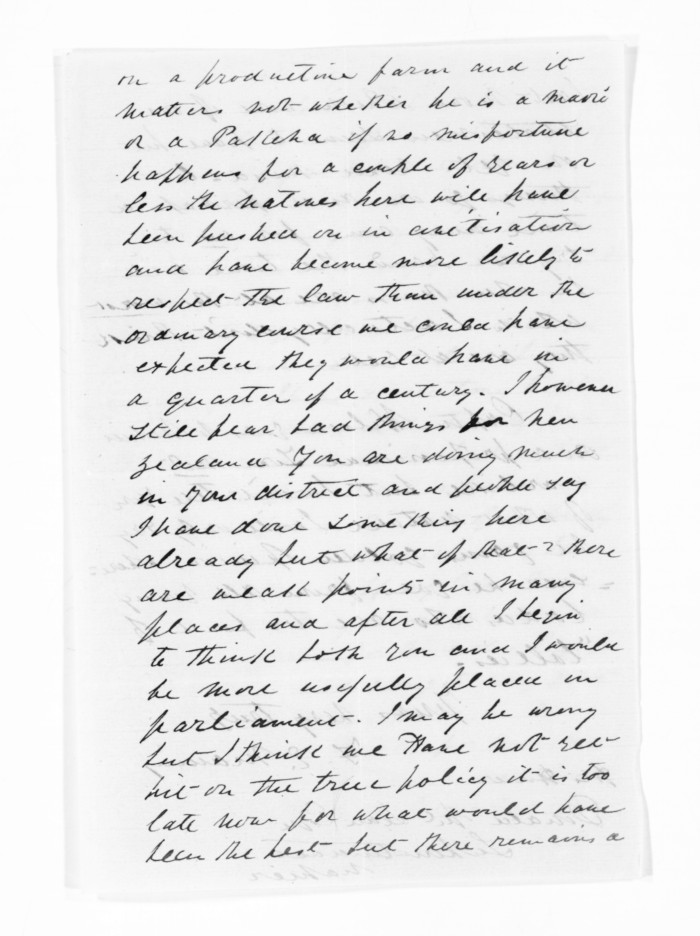 on a productive farm and it
matters not whether he is a maori
or a Pakeha if no misfortune
happens for a couple of years or
less the natives here will have
been pushed on in civilisation
and have become more likely to
respect the law than under the
ordinary course we could have
expected they would have in
a quarter of a century. I however
still fear bad things for New
Zealand You are doing much
in your district and people say
I have done something here
already but what of that? there
are weak points in many
places and after all I begin
to think both you and I would
be more usefully placed in
parliament. I may be wrong
but I think we Have not yet
hit on the true policy it is too
late now for what would have
been the best but there remains a